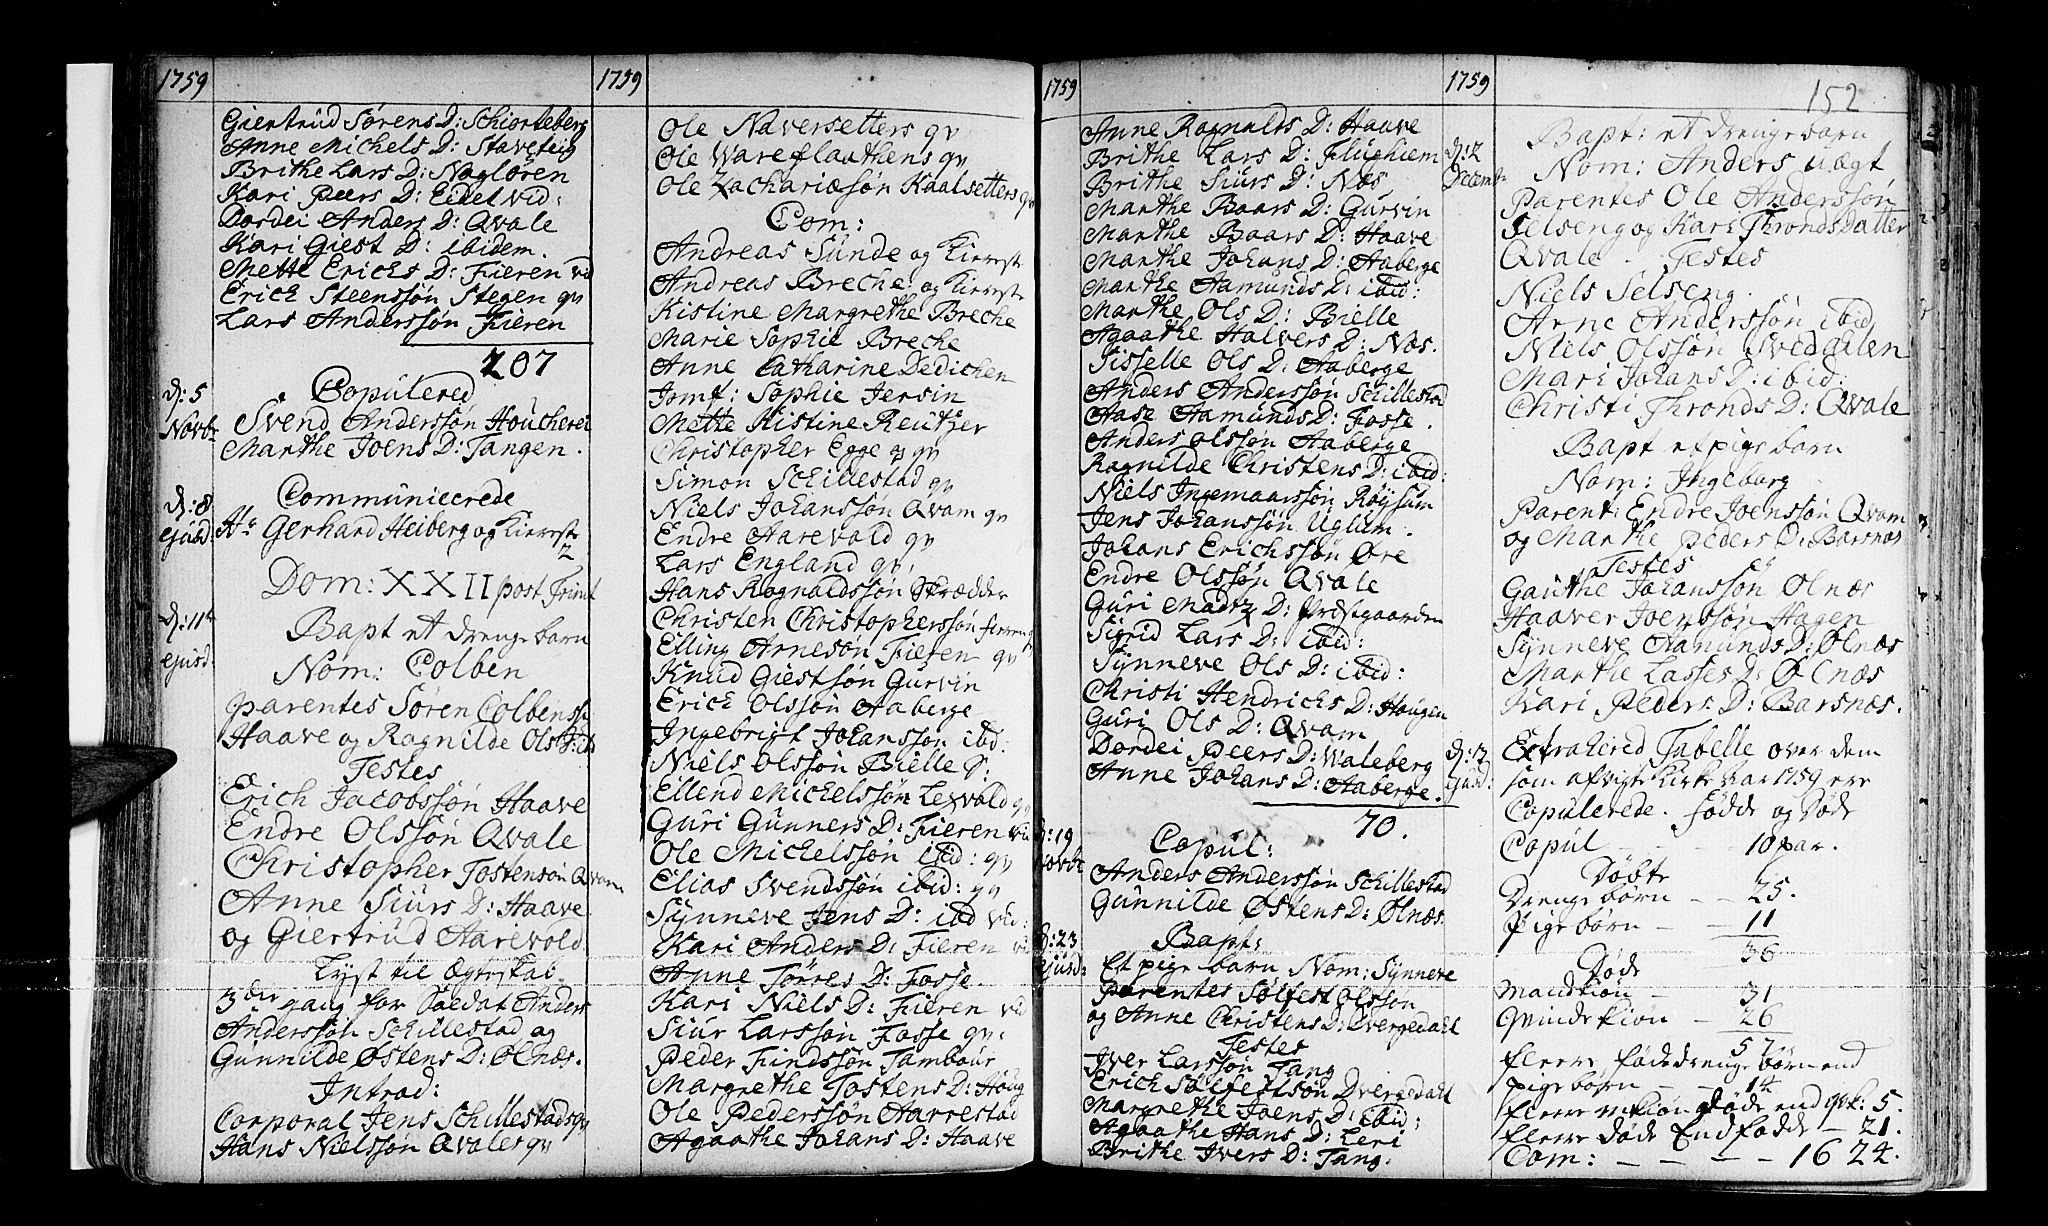 1759
Giertrud Sørens D: Schiorteberg
Anne Michels D: Staveteig
Brithe Lars D: Nagløren
Kari Peers D: Eidet vid:
Dordei Anders D: Qvale
Kari Giest D: ibidem.
Mette Erichs D: Fieren vid
Erich Steenssøn Stegen qv
Lars Anderssøn Fieren
207
Copulered
d: 5
Novbr
Svend Anderssøn Houcherei
Marthe Joens D: Tangen.
Communicerede
d: 8
ejusd:
Hr Gerhard Heiberg og Kierreste
2
Dom: XXII post Trinit
d: 11te
ejusd:
Bapt et drenge barn
Nom: Colben
parentes Søren Colbenss:
Haave og Ragnilde Ols D: ib
Testes
Erich Jacobssøn Haave
Endre Olssøn Qvale
Christopher Tostensøn Qvam
Anne Siurs D: Haave
og Giertrud Aarevold
Lyst til Ægteskab
3die gang for Soldat Anders
Anderssøn Schillestad og
Gunnilde Østens D: Ølnæs.
Introd:
Corporal Jens Schillestads qv
Hans Nielssøn Qvales qv
1759
Ole Naversetters qv
Ole Wareflaathens qv
Ole Zachariæsøn Kaalsetters qv
Com:
Andreas Sunde og Kierreste
Andreas Breche og Kierreste
Kistine Margrethe Breche
Marie Sophie Breche
Anne Catharine Dedichen
Jomf: Sophie Jersin
Mette Kistine Reutzer
Christopher Egge qv qv
Simon Schillestad qv
Niels Johanssøn Qvam qv
Endre Aarevold qv
Lars England qv.
Hans Rognaldssøn Skrædder
Christen Christopherssøn Fieren qv
Elling Arnesøn Fieren qv
Knud Giestsøn Gurvin
Erich Olssøn Aaberge
Ingebrigt Johanssøn ibd:
Niels Olssøn Bielle S:
Ellend Michelssøn Lexvold qv
Guri Gunners D: Fieren vid
Ole Michelssøn ibid: qv
Elias Svendssøn ibid: qv
Synneve Jens D: ibd vid:
Kari Anders D: Fieren vid
Anne Tørres D: Fosse.
Kari Niels D: Fieren vid
Siur Larssøn Fosse qv.
Peder Findssøn Tambour
Margrethe Tostens D: Houg
Ole Pederssøn Aarrestad
Agaathe Johans D: Haave
1759
Anne Ragnalds D: Haave
Brithe Lars D: Flughiem
Brithe Siurs D: Næs
Marthe Baars D: Gurvin
Marthe Baars D: Haave
Marthe Johans D: Aaberge
Marthe Aamunds D: ibid:
Marthe Ols D: Bielle
Agaathe Halvers D: Næs.
Sisselle Ols D: Aaberge
Anders Anderssøn Schillestad
Aase Aamunds D: Fosse.
Anders Olssøn Aaberge
Ragnilde Christens D: ibid:
Niels Ingemaarssøn Røysum
Jens Johanssøn Uglum.
Johans Erichssøn Øre
Endre Olssøn Qvale
Guri Madtz D: Præstgaarden
Sigrid Lars D: ibid:
Synneve Ols D: ibid:
Christi Hendrichs D: Hougen
Guri Ols D: Qvam
Dordei Peers D: Waleberg
Anne Johans D: Aaberge.
70.
d: 19
Novbr
Copul:
Anders Anderssøn Schillestad
Gunnilde Østens D: Ølnæs.
d: 23
ejusd:
Bapt:
Et pige barn Nom: Synneve
Parentes Solfest Olssøn
og Anne Christens D: Dvergedahl
Testes
Iver Larssøn Tang
Erich Solfestsøn Dvergedahl
Margrethe Joens D: ibid:
Agaathe Hans D: Leri
Brithe Ivers D: Tang.
1759
152
d: 2
Decemb:
Bapt: et drenge barn
Nom: Anders uægt
Parentes Ole Anderssøn
Selseng og Kari Thronds Datter
Qvale. Testes
Niels Selseng.
Arne Anderssøn ibid
Niels Olssøn Svedalen
Mari Johans D: ibid:
Christi Thronds D: Qvale
Bapt et pige barn
Nom: Ingeborg
Parent: Endre Joenssøn Qvam
og Marthe Peders D: Barsnæs
Testes
Gauthe Johanssøn Ølnæs
Haaver Joenssøn Hagen
Synneve Aamunds D: Ølnæs
Marthe Lasses D: Ølnæs
Kari Peders D: Barsnæs.
d: 13
Ejusd:
Extrahered Tabelle over dem
som afvigte Kirke Aar 1759 ere
Copulerede. fødde og døde
Copul - - - 10 par.
Døbte
Drenge børn - - 25.
Pige børn - - 11
36
Døde
Mandkiøn - 31
Qvindekion - 26
57.
fleere fødde drenge børn end
pige børn - - 14
fleere mkiøn døde end qvk: 5.
fleere døde End fødde - 21.
Com: - - - - 1624.